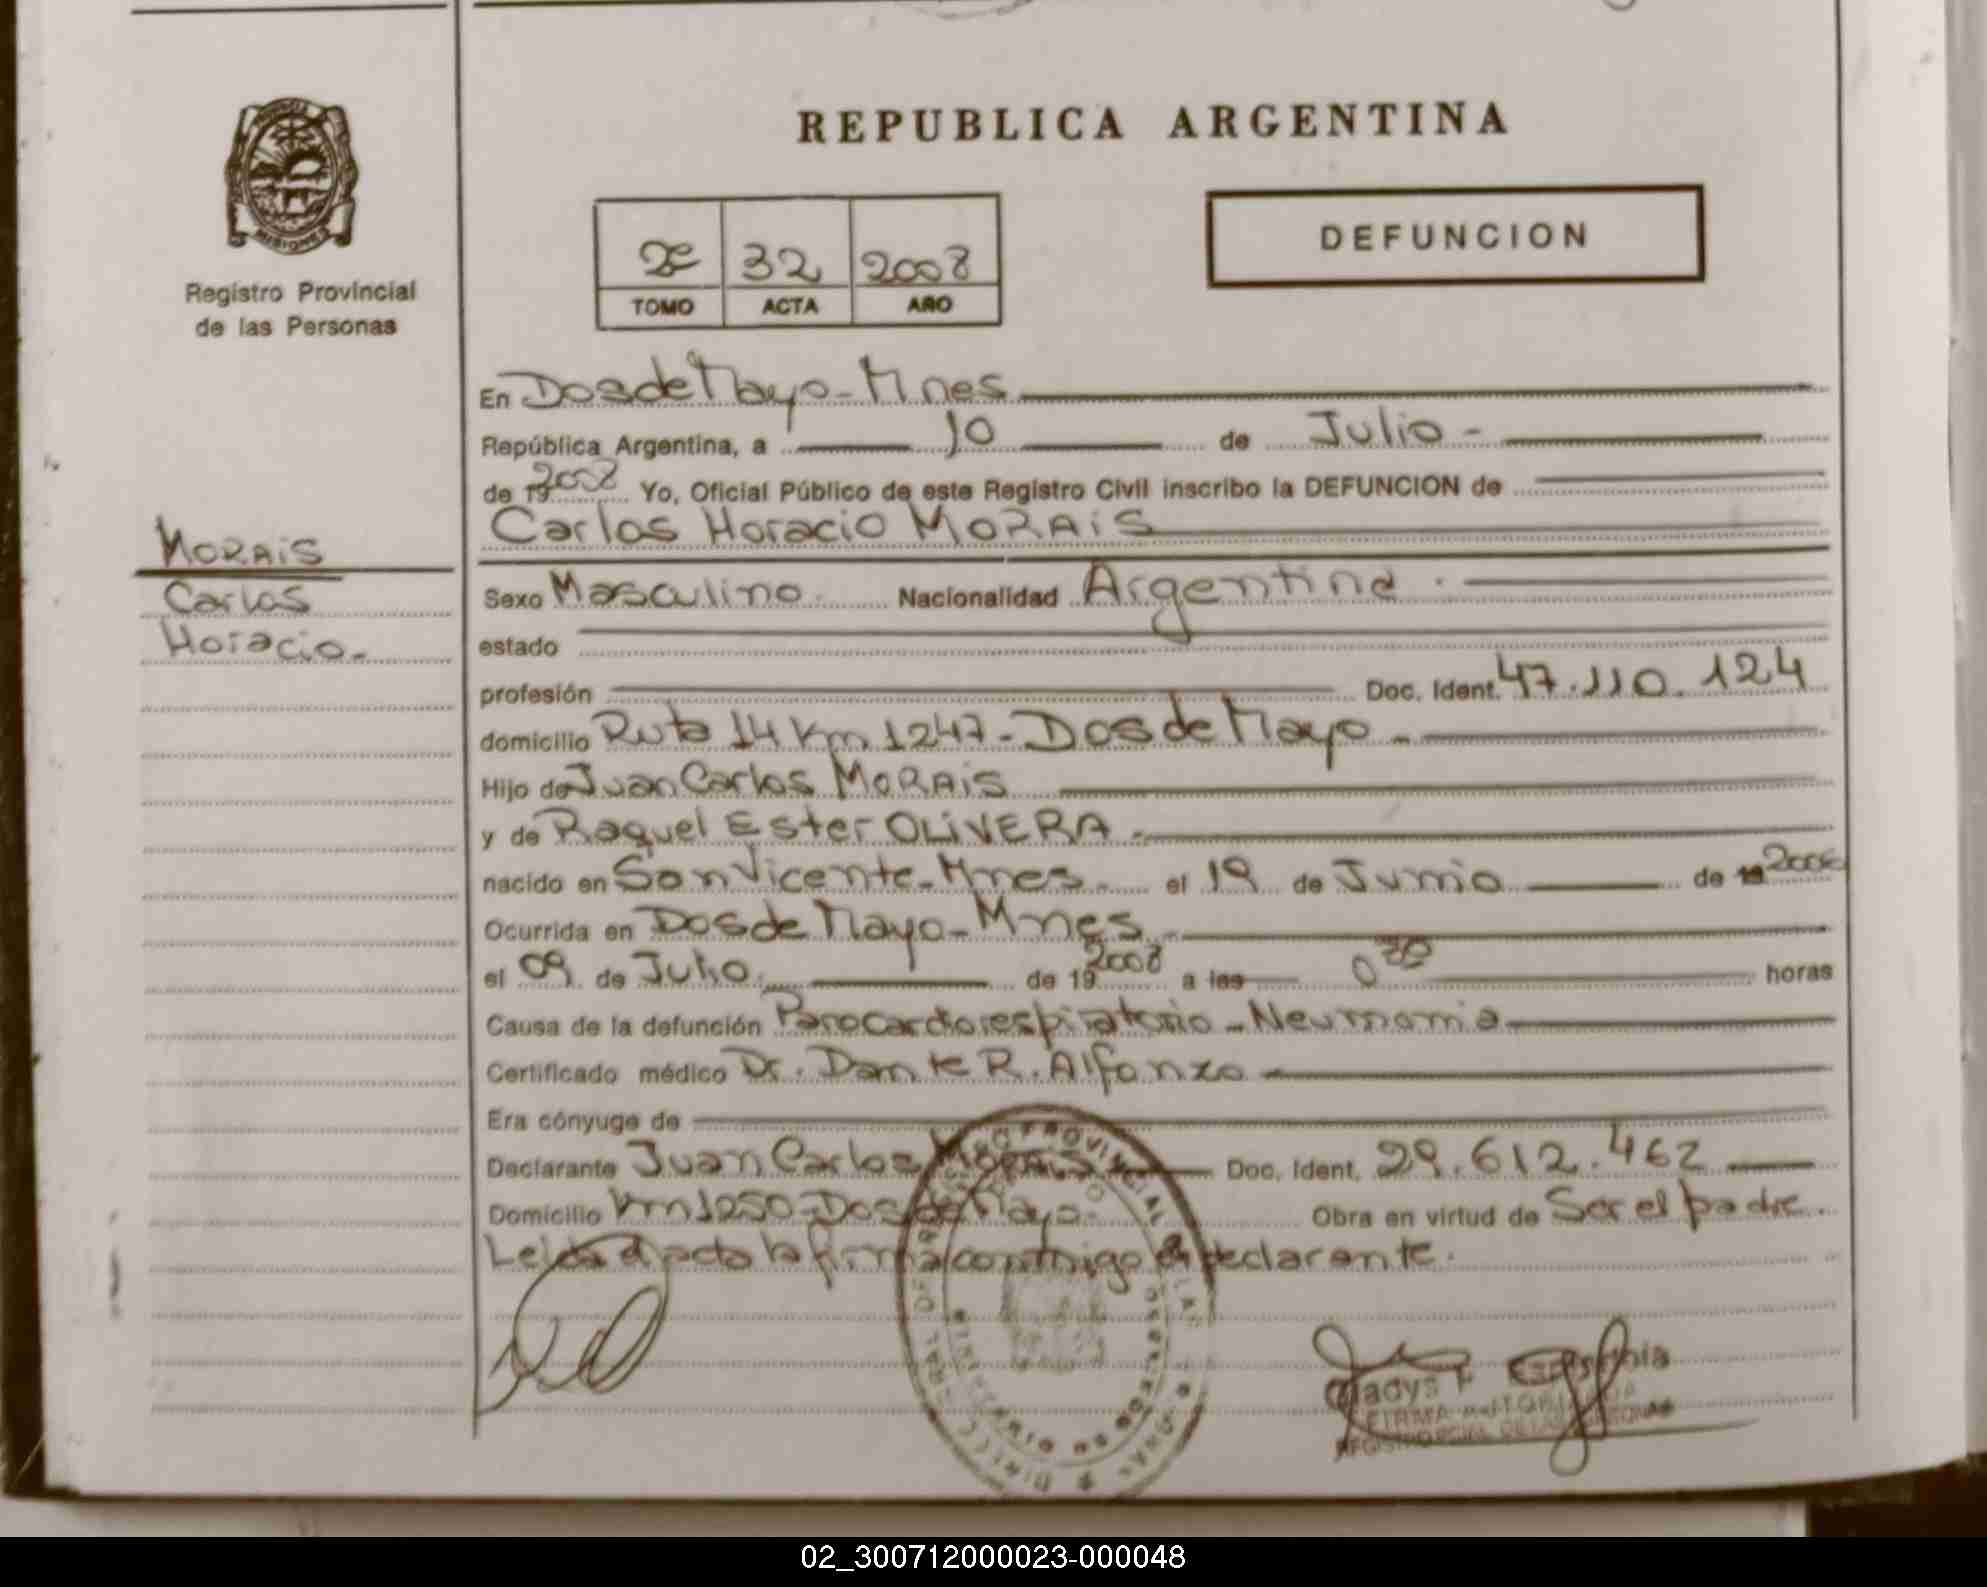 REPUBLICA ARGENTINA
MISIONES
Registro Provincial
de las Personas
2º 32 2008
TOMO ACTA AÑO
DEFUNCION
En Dos de Mayo - Mnes
República Argentina, a 10 de Julio -
de 19 2008 Yo, Oficial Público de este Registro Civil inscribo la DEFUNCION de
Carlos Horacio MORAIS
MORAIS
Carlos
Horacio -
Sexo Masculino. Nacionalidad Argentina.
estado
profesión Doc. Ident. 47.110.124
domicilio Ruta 14 Km 1247 - Dos de Mayo -
Hijo de Juan Carlos MORAIS
y de Raquel Ester OLIVERA -
nacido en San Vicente - Mnes - el 19 de Junio de 19 2006
Ocurrida en Dos de Mayo - Mnes -
el 09 de Julio de 19 2008 a las 0 30 horas
Causa de la defunción Parocardiorespiratorio - Neumonia
Certificado médico Dr. Dante R. Alfonzo
Era cónyuge de
Declarante Juan Carlos Morais Doc. Ident. 29.612.462
Domicilio Km 1250 - Dos de Mayo - Obra en virtud de Ser el padre.
Leida el acta la firma conmigo el declarante.
Gladys F
FIRMA AUTORIZADA
02_300712000023-000048